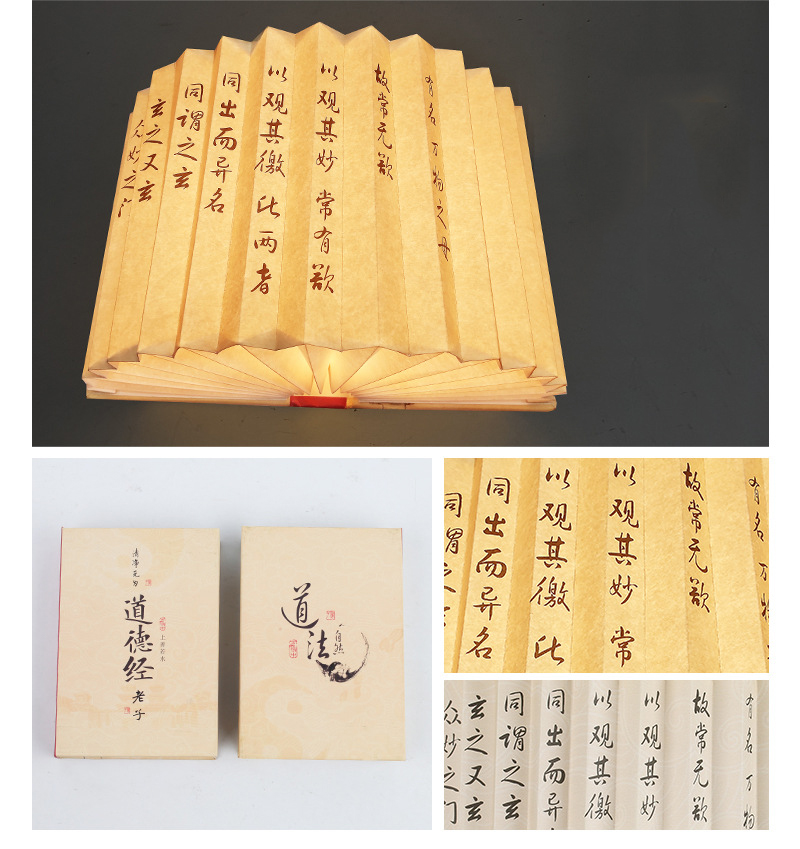 有名万物之母
故常无欲
以观其妙常有欲
以观其徼此两者
同出而异名
同谓之玄
玄之又玄
众妙之门
清净无为
道德经
上善若水
老子
道法
自然
有名万物
故常无欲
以观其妙常
以观其徼此
同出而异名
同谓之
有名万物
故常无欲
以观其妙
以观其徼
同出而异名
同谓之玄
玄之又玄
众妙之门